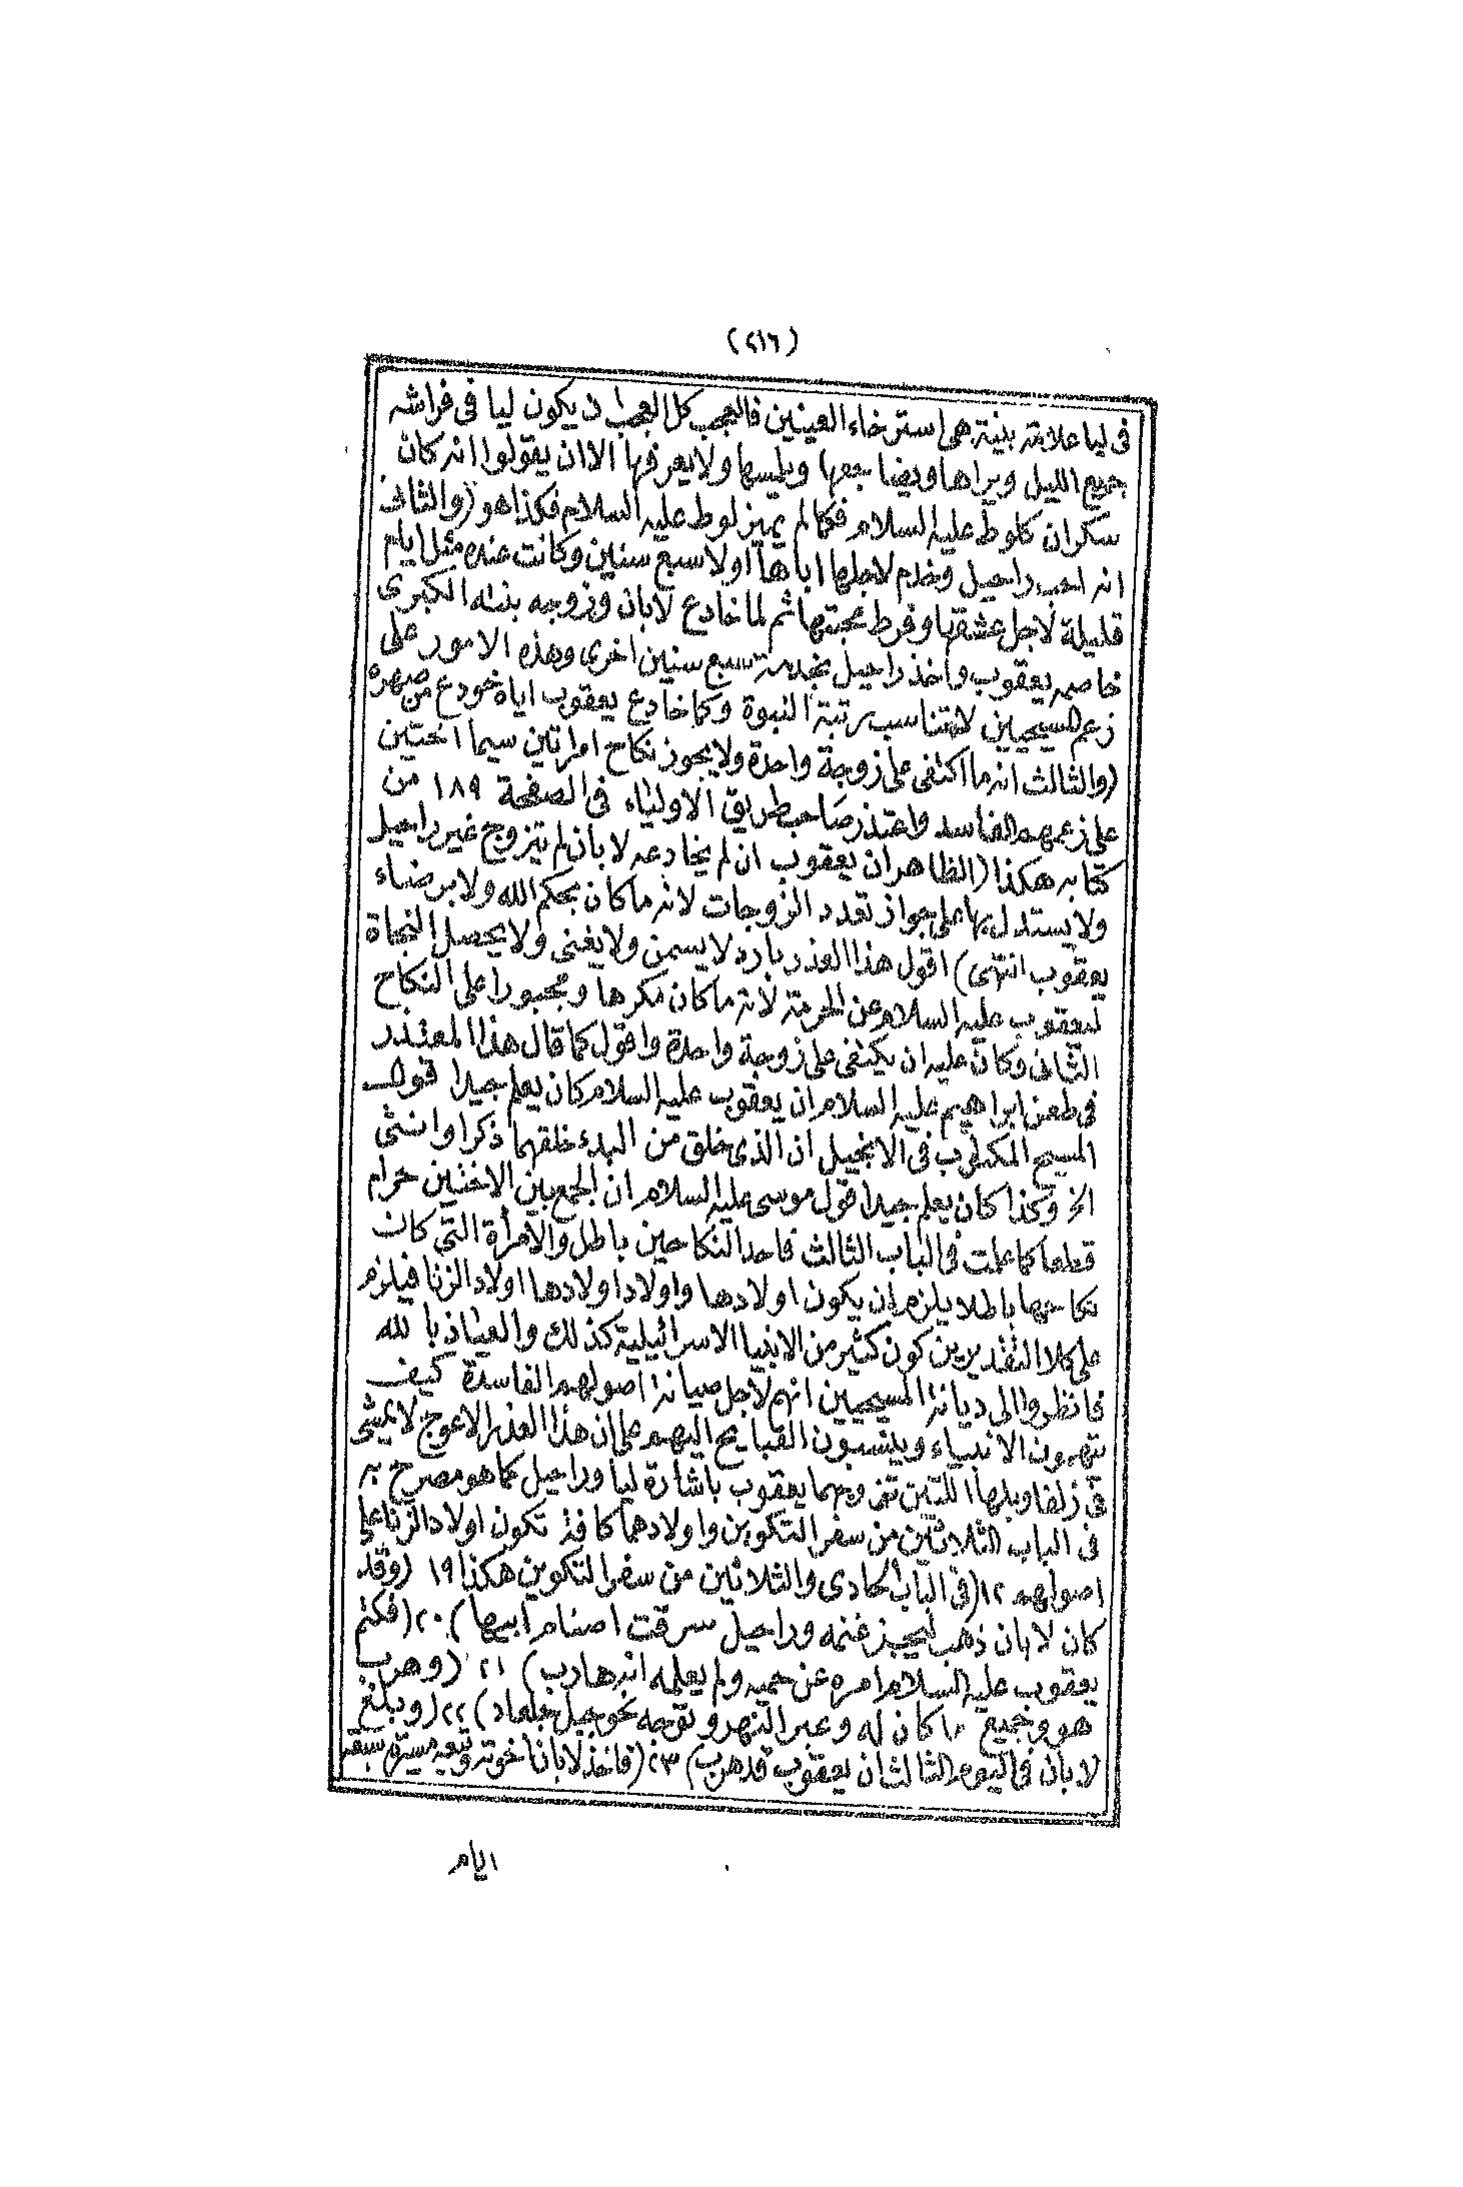 (٢١٦)
فى ليا علامة بينة هى استرخاء العينين فالعجب كل العجب ان يكون ليا فى فراشه
جميع الليل ويراها ويضاجعها ويلمسها ولا يعرفها الا ان يقولوا انه كان
سكران كلوط عليه السلام فكما لم يميز لوط عليه السلام فكذا هو (والثانى
انه احب راحيل وخدم لاجلها اباها اولا سبع سنين وكانت عنده مثل ايام
قليلة لاجل عشقها وفرط محبتها ثم لما خادع لابان وزوجه بنته الكبرى
خاصمه يعقوب واخذ راحيل بخدمة سبع سنين اخرى وهذه الامور على
زعم المسيحيين لا تناسب رتبة النبوة وكما خادع يعقوب اباه خودع من صهره
(والثالث انه ما اكتفى على زوجة واحدة ولا يجوز نكاح امراتين سيما اختين
على زعمهم الفاسد واعتذر صاحب طريق الاولياء فى الصفحة ١٨٩ من
كتابه هكذا (الظاهر ان يعقوب ان لم يخادعه لابان لم يتزوج غير راحيل
ولا يستدل بها على جواز تعدد الزوجات لانه ما كان بحكم الله ولا برضاء
يعقوب انتهى) اقول هذا العذر بارد لا يسمن ولا يغنى ولا يحصل النجاة
ليعقوب عليه السلام عن الحرمة لانه ما كان مكرها ومجبورا على النكاح
الثانى وكان عليه ان يكتفى على زوجة واحدة واقول كما قال هذا المعتذر
فى طعن ابراهيم عليه السلام ان يعقوب عليه السلام كان يعلم جيدا قول
المسيح المكتوب فى الانجيل ان الذى خلق من البدء خلقهما ذكرا وانثى
الخ وكذا كان يعلم جيدا قول موسى عليه السلام ان الجمع بين الاختين حرام
قطعا كما علمت فى الباب الثالث فاحد النكاحين باطل والامرأة التى كان
نكاحها باطلا يلزم ان يكون اولادها واولاد اولادها اولاد الزنا فيلزم
على كلا التقديرين كون كثير من الانبيا الاسرائيلية كذلك والعياذ بالله
فانظروا الى ديانة المسيحيين انهم لاجل صيانة اصولهم الفاسدة كيف
يتهمون الانبياء وينسبون القبايح اليهم على ان هذا العذر الاعوج لا يمشى
فى زلفا وبلها اللتين تزوجهما يعقوب باشارة ليا وراحيل كما هو مصرح به
فى الباب الثلاثين من سفر التكوين واولادهما كافة تكون اولاد الزنا على
اصولهم ١٢ (فى الباب الحادى والثلاثين من سفر التكوين هكذا ١٩ (وقد
كان لابان ذهب ليجز غنمه وراحيل سرقت اصنام ابيها) ٢٠ (فكتم
يعقوب عليه السلام امره عن حميه ولم يعلمه انه هارب) ٢١ (وهرب
هو وجميع ما كان له وعبر النهر وتوجه نحو جبل جلعاد) ٢٢ (وبلغ
لابان فى اليوم الثالث ان يعقوب قد هرب) ٢٣ (فاخذ لابان اخوته وتبعه مسيرة سبعة
ايام